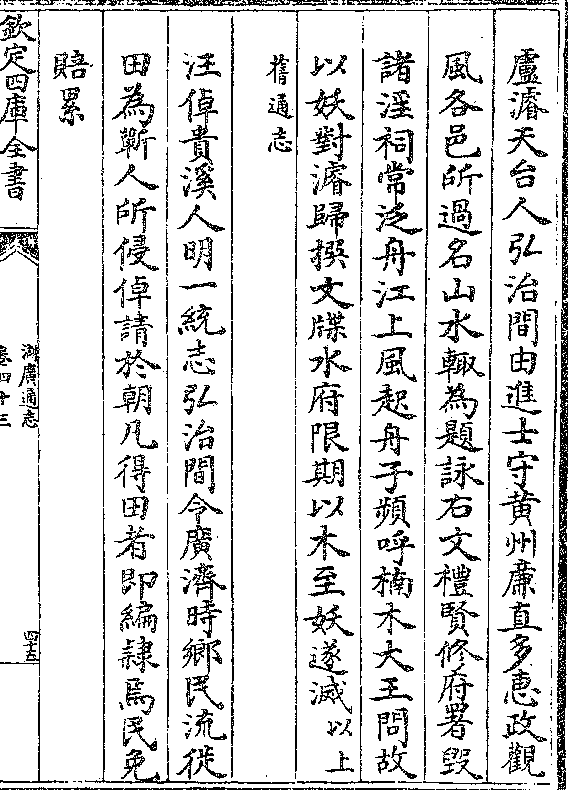 盧濬天台人弘治間由進士守黄州亷直多惠政觀
風各邑所過名山水輙為題詠右文禮賢修府署毁
諸淫祠常泛舟江上風起舟子頻呼楠木大王問故
以妖對濬歸撰文牒水府限期以木至妖遂滅以上
舊通志
汪倬貴溪人明一統志弘治間令廣濟時鄉民流徙
田為蘄人所侵倬請於朝凡得田者即編隷焉民免
賠累
欽定四庫全書
湖廣通志
卷四十三
四十五